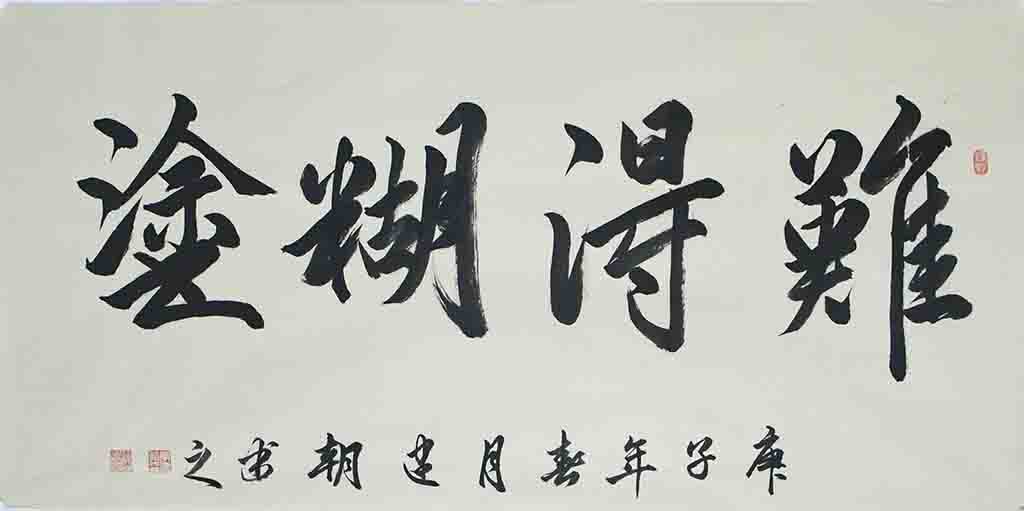 難得糊塗
庚子年春月建朝书之